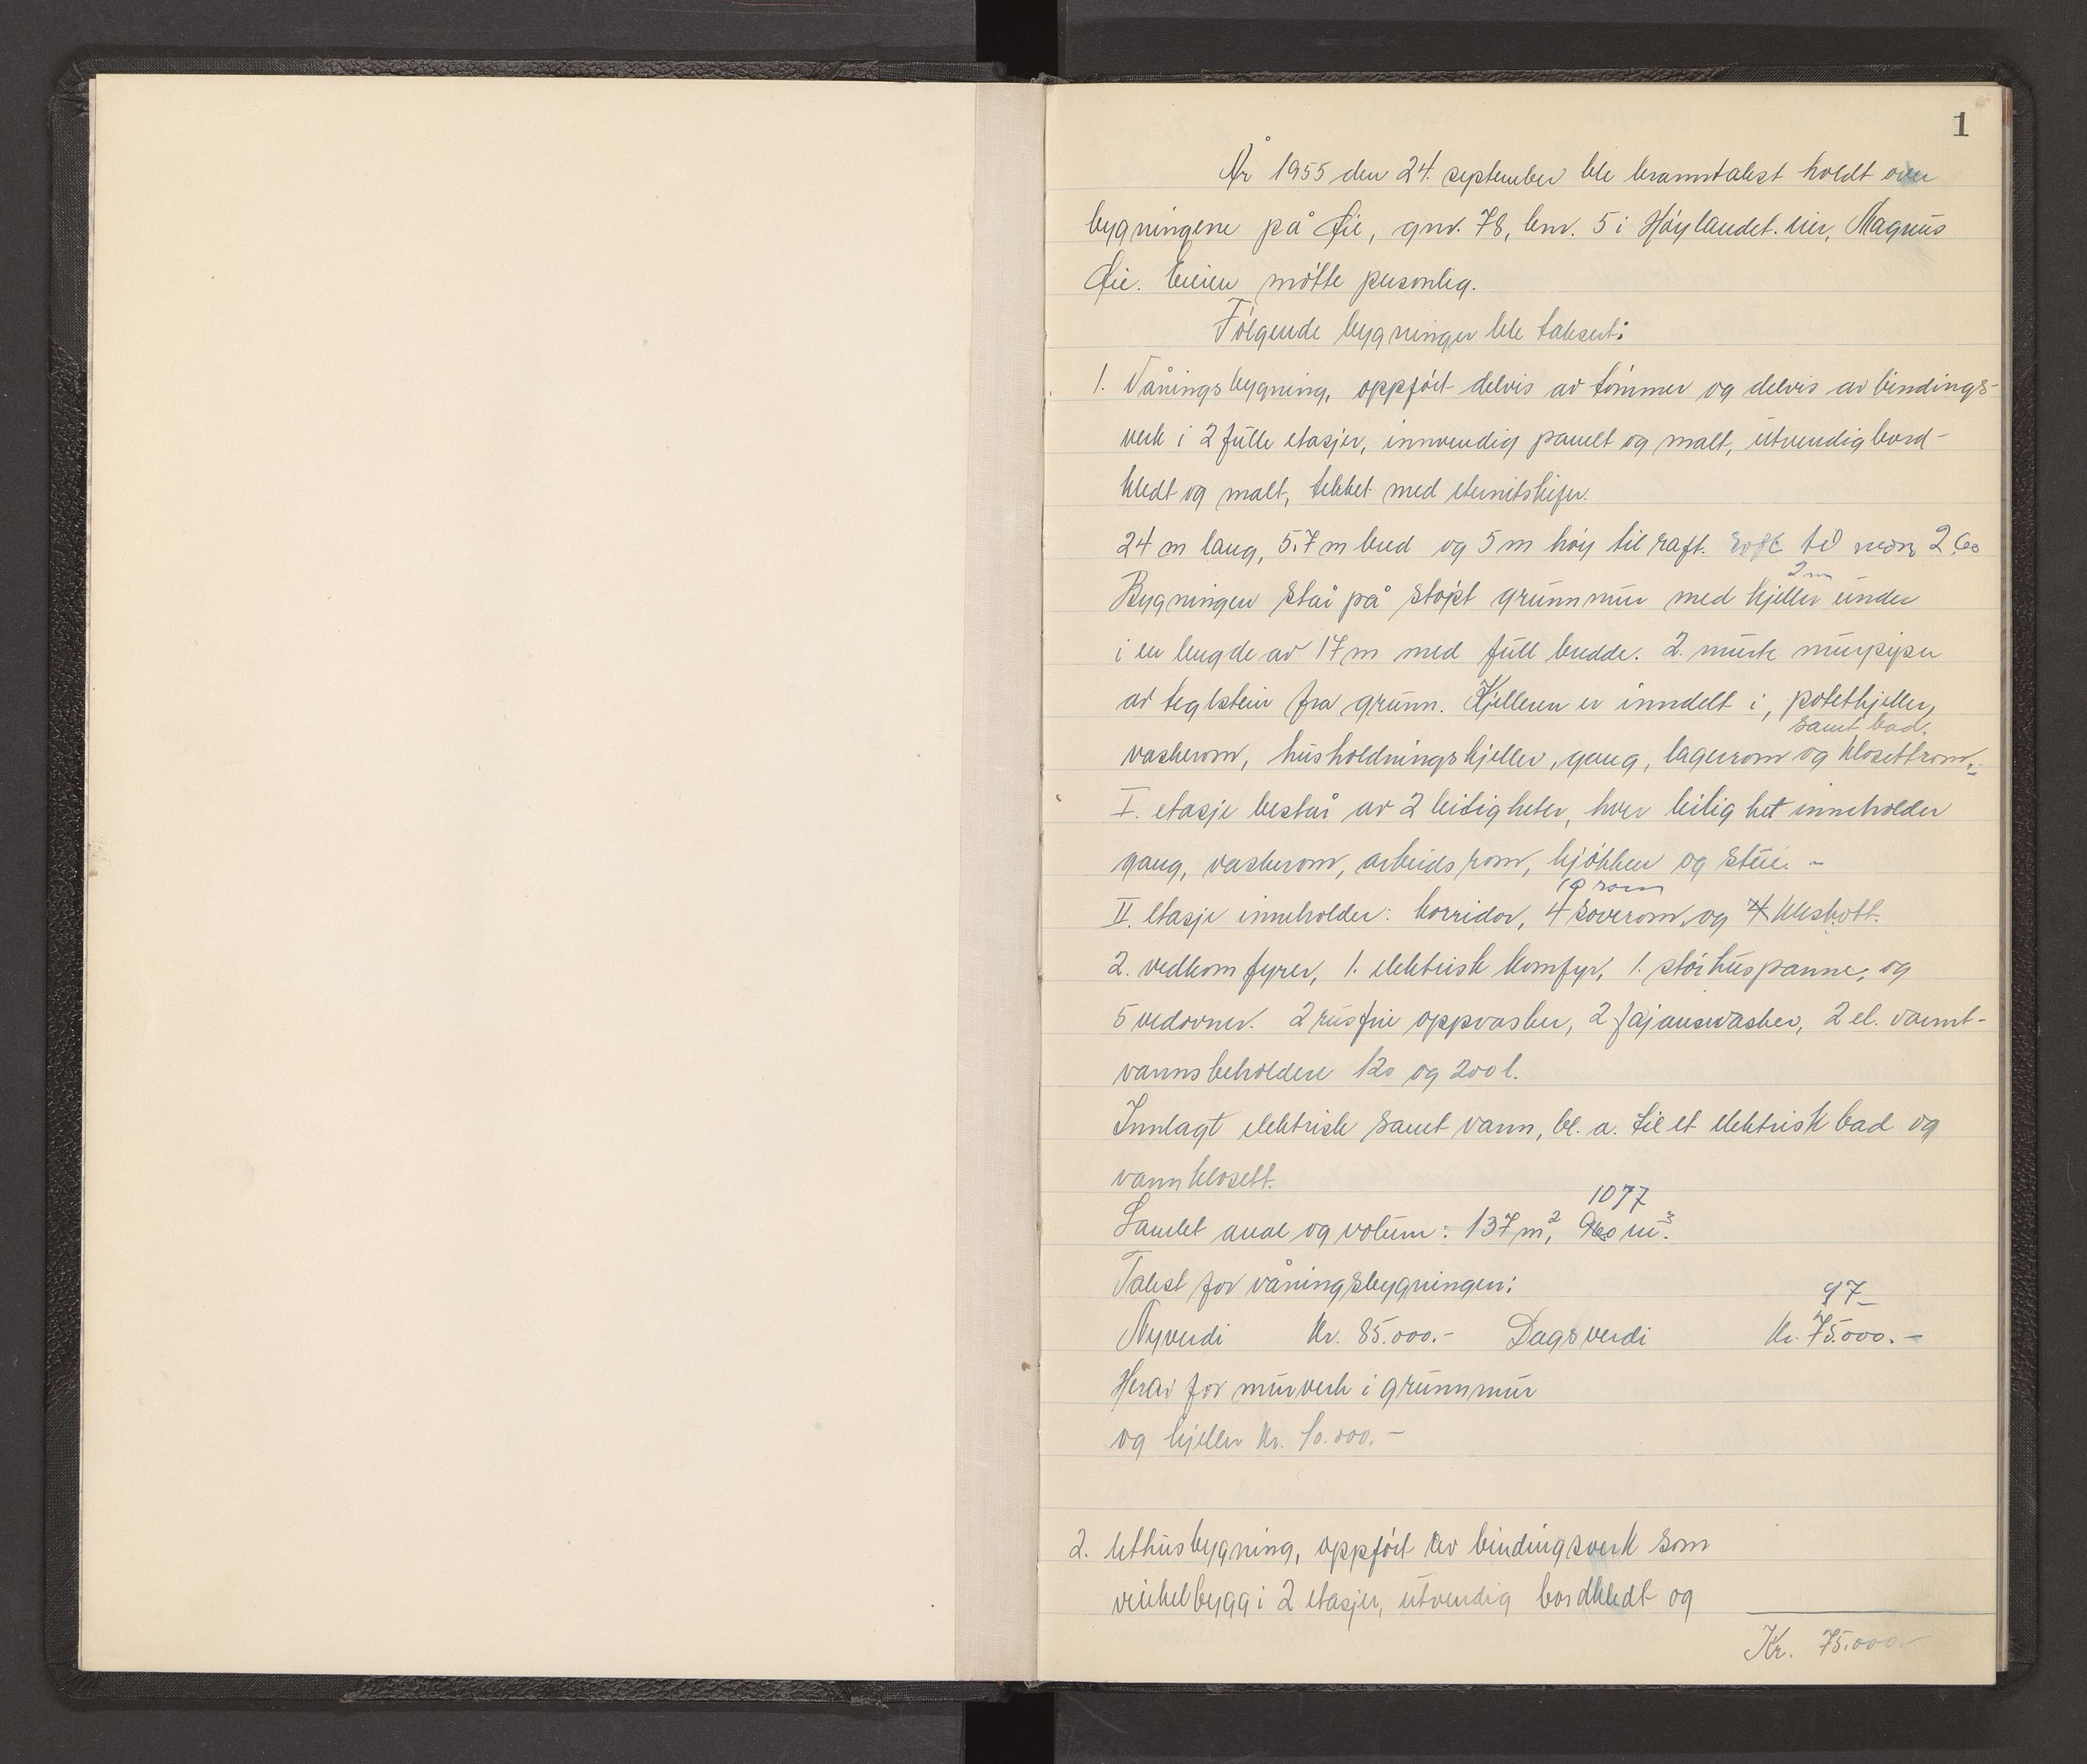 1
År 1955 den 24. september ble branntakst holdt over
bygningene på Øie, gnr. 78, bnr. 5 i Høylandet. Eier, Magnus
Øie. Eieren møtte personlig.
Følgende bygninger ble taksert:
1. Våningsbygning, oppført delvis av tømmer og delvis av bindings-
verk i 2 fulle etasjer, innvendig panelt og malt, utvendig bord-
kledt og malt, tekket med eternitskifer.
24 m lang, 5.7 m bred og 5 m høy til raft. raft til møn 2,60
2 m
Bygningen står på støpt grunnmur med kjeller under
i en lengde av 17 m med full bredde. 2. murte murpiper
av teglstein fra grunn. Kjelleren er inndelt i, potetkjeller,
samt bad.
vaskerom, husholdningskjeller, gang, lagerrom og klosettrom.-
I. etasje består av 2 leiligheter, hver leilighet inneholder
gang, vaskerom, arbeidsrom, kjøkken og stue. -
10 rom
II. etasje inneholder: korridor, 4 soverom og 4 kleskott.
2. vedkomfyrer, 1. elektrisk komfyr, 1. størhuspanne, og
5 vedovner. 2 rusfrie oppvasker, 2 fajansvasker, 2 el. varmt-
vannsbeholdere 120 og 200 l.
Innlagt elektrisk samt vann, bl. a. til et elektrisk bad og
vannklosett.
1077
Samlet areal og volum: 137 m², 960 m³.
Takst for våningsbygningen:
97-
Nyverdi Kr. 85.000.- Dagsverdi Kr. 75.000.-
Herav for murverk i grunnmur
og kjeller Kr. 10.000.-
2. Uthusbygning, oppført av bindingsverk som
vinkelbygg i 2 etasjer, utvendig bordkledt og
Kr. 75.000.-